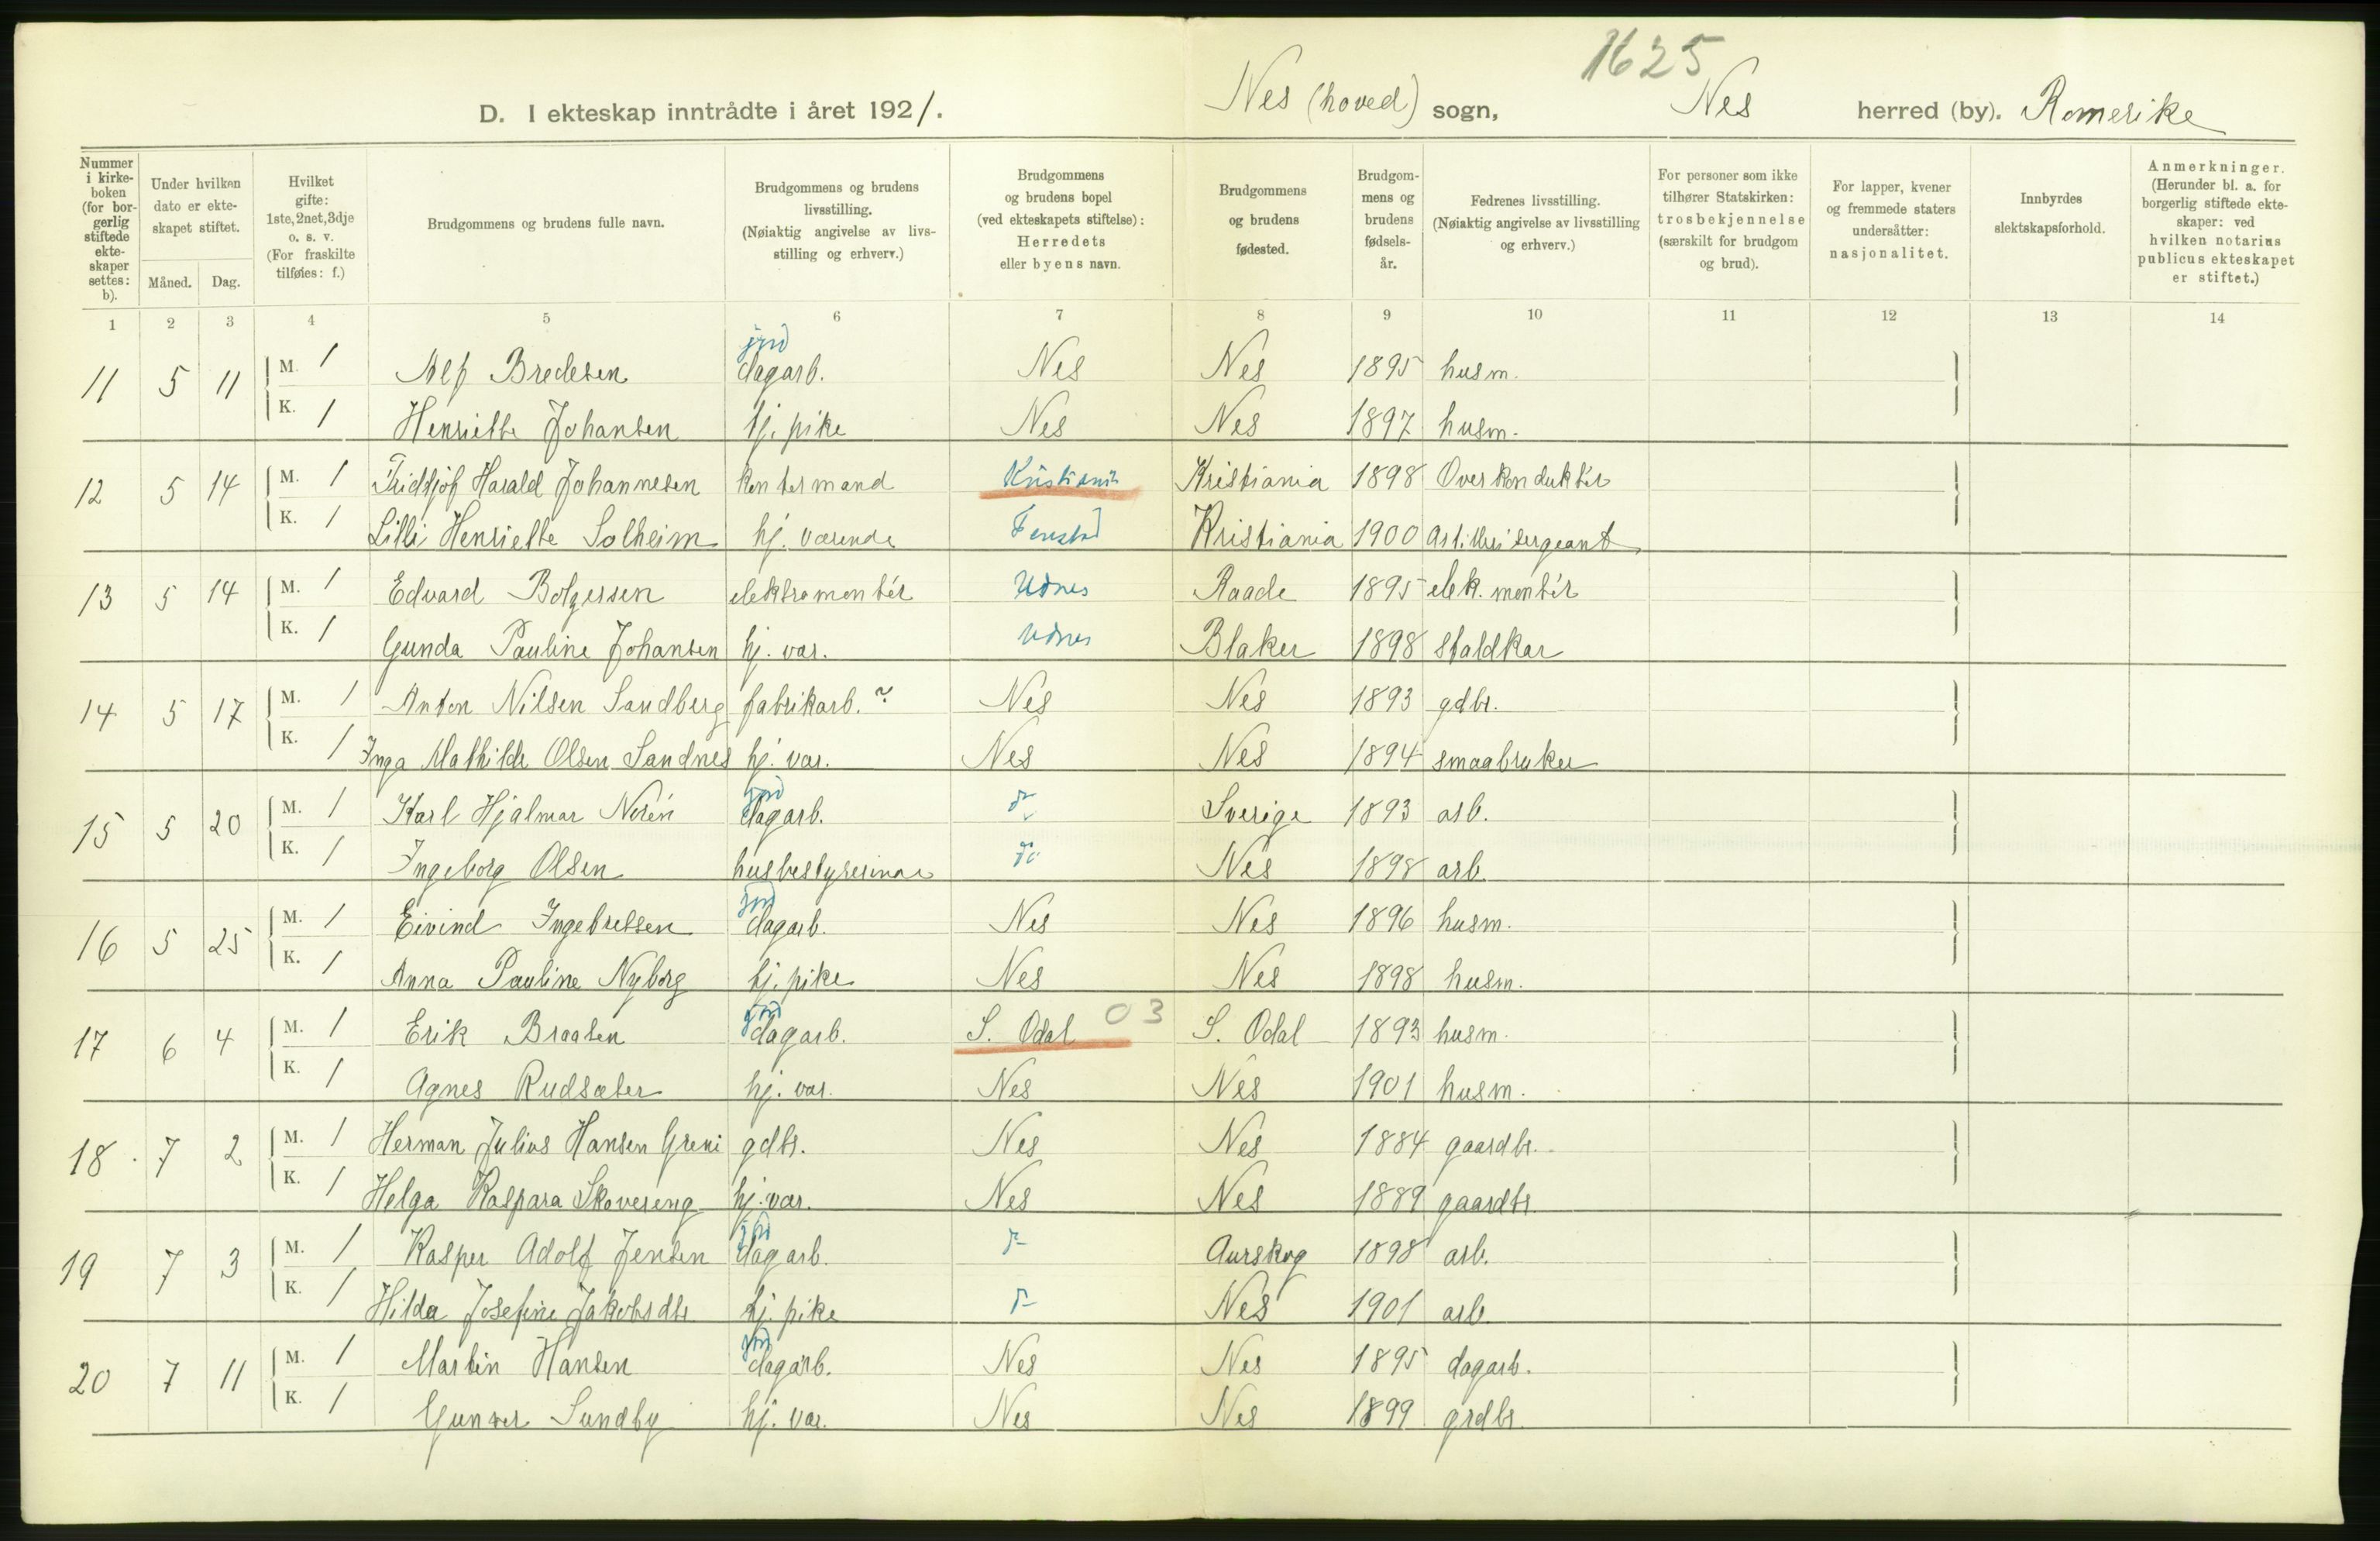 1625
D. I ekteskap inntrådte i året 1921. Nes (hoved) sogn, Nes herred (by). Romerike
Nummer i kirke-boken (for bor-gerlig stiftede ekte-skaper settes: b).
Under hvilken dato er ekte-skapet stiftet.
Måned. Dag.
Hvilket gifte: 1ste, 2net, 3dje o. s. v. (For fraskilte tilføies: f.)
Brudgommens og brudens fulle navn.
Brudgommens og brudens livsstilling. (Nøiaktig angivelse av livs-stilling og erhverv.)
Brudgommens og brudens bopel (ved ekteskapets stiftelse): Herredets eller byens navn.
Brudgommens og brudens fødested.
Brudgom-mens og brudens fødsels-år.
Fedrenes livsstilling. (Nøiaktig angivelse av livsstilling og erhverv.)
For personer som ikke tilhører Statskirken: trosbekjennelse (særskilt for brudgom og brud).
For lapper, kvener og fremmede staters undersåtter: nasjonalitet.
Innbyrdes slektskapsforhold.
Anmerkninger. (Herunder bl. a. for borgerlig stiftede ekte-skaper: ved hvilken notarius publicus ekteskapet er stiftet.)
1 2 3 4 5 6 7 8 9 10 11 12 13 14
11 5 11 M. 1 Alf Bredesen jord dagarb. Nes Nes 1895 husm.
K. 1 Henriette Johansen tj. pike Nes Nes 1897 husm.
12 5 14 M. 1 Fridtjof Harald Johannesen kontormand Kristiania Kristiania 1898 Overkonduktør
K. 1 Lilli Henriette Solheim hj. værende Fenstad Kristiania 1900 Artillerisergeant
13 5 14 M. 1 Edvard Bolgersen elektromontér Udnes Raade 1895 elek. montér
K. 1 Gunda Pauline Johansen hj. vær. Udnes Blaker 1898 staldkar
14 5 17 M. 1 Anton Nilsen Sandberg fabrikarb. ? Nes Nes 1893 gdbr.
K. 1 Inga Mathilde Olsen Sandnes hj. vær. Nes Nes 1894 smaabruker
15 5 20 M. 1 Karl Hjalmar Norén jord dagarb. Sverige 1893 arb.
K. 1 Ingeborg Olsen husbestyrerinne Nes 1898 arb.
16 5 25 M. 1 Eivind Ingebretsen jord dagarb. Nes Nes 1896 husm.
K. 1 Anna Pauline Nyborg tj. pike Nes Nes 1898 husm.
17 6 4 M. 1 Erik Braaten jord dagarb. S. Odal 03 S. Odal 1893 husm.
K. 1 Agnes Rudsæter hj. vær. Nes Nes 1901 husm.
18 7 2 M. 1 Herman Julius Hansen Greni gdbr. Nes Nes 1884 gaardbr.
K. 1 Helga Kaspara Skovereng hj. vær. Nes Nes 1889 gaardbr.
19 7 3 M. 1 Kasper Adolf Jensen jord dagarb. Aurskog 1898 arb.
K. 1 Hilda Josefine Jakobsdtr tj. pike Nes 1901 arb.
20 7 11 M. 1 Martin Hansen jord dagarb. Nes Nes 1895 dagarb.
K. 1 Gunvor Sundby hj. vær. Nes Nes 1899 grdbr.